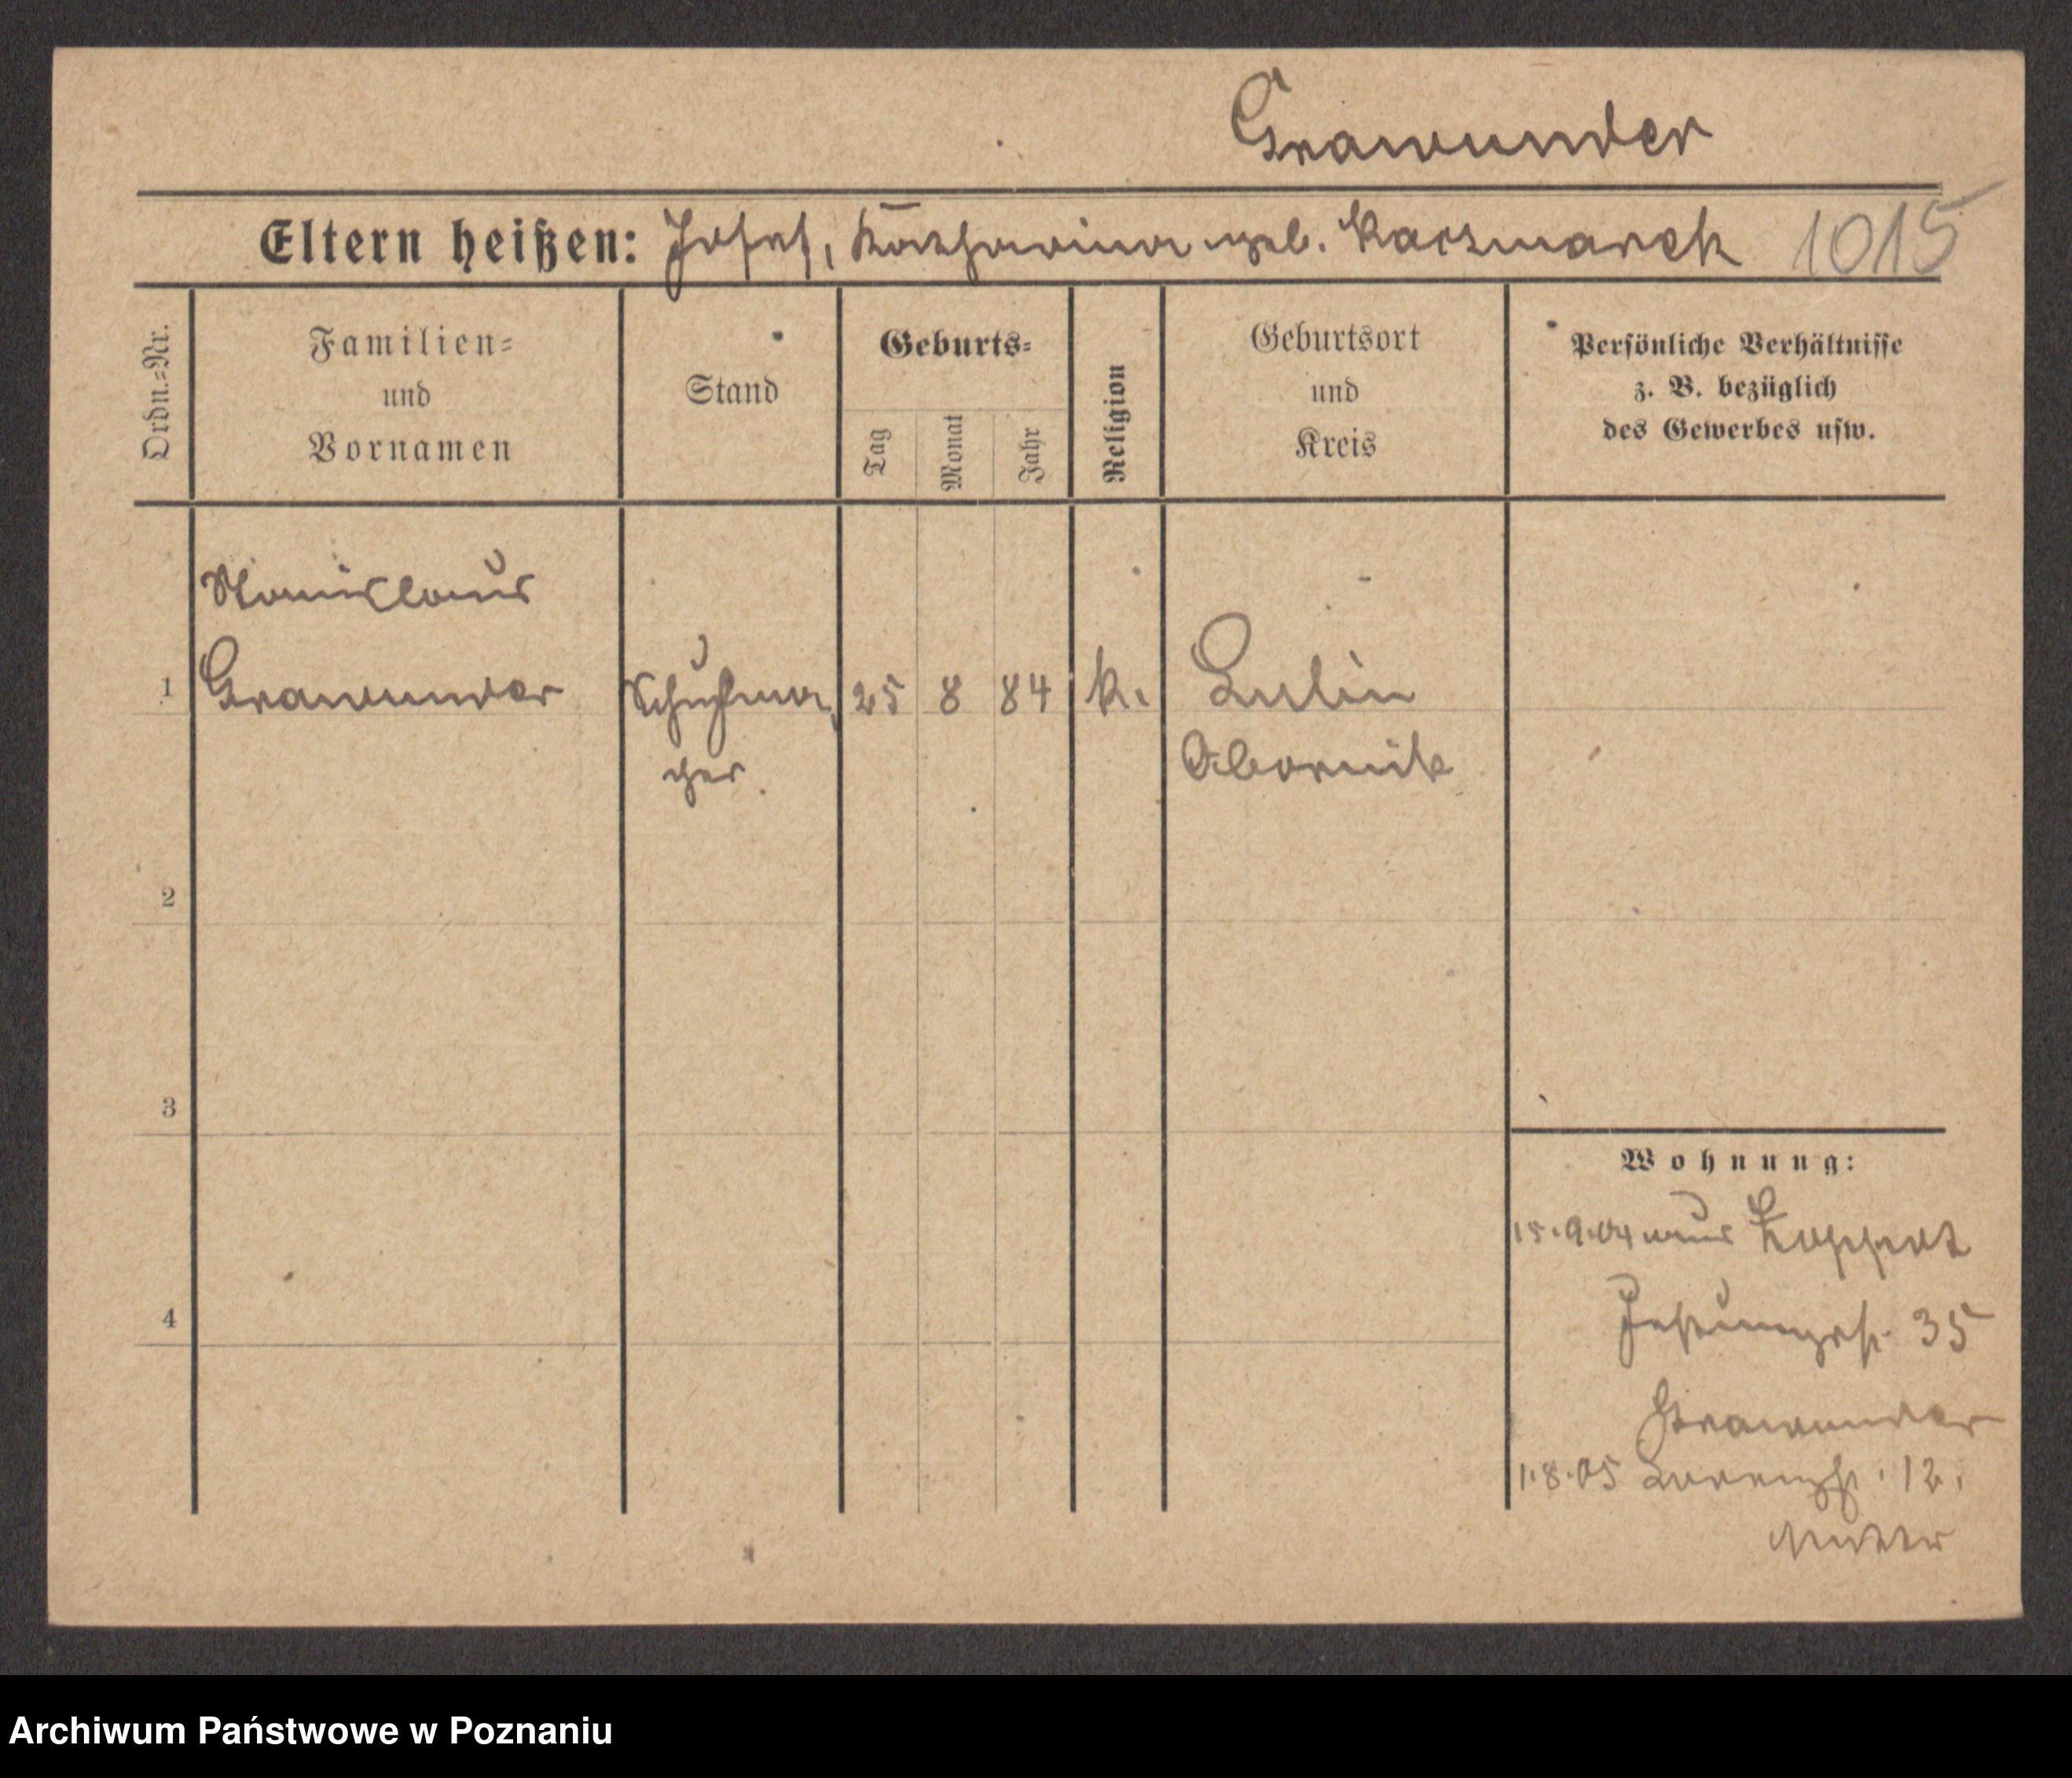 Grawunder
Eltern heißen: Josef, Katharina geb. Kaczmarek 1015
Ordn.=Nr.
Familien=
und
Vornamen
Stand
Geburts=
Tag
Monat
Jahr
Religion
Geburtsort
und
Kreis
Persönliche Verhältnisse
z. B. bezüglich
des Gewerbes usw.
Stanislaus
1 Grawunder Schuhma 25 8 84 k. Lulin
cher Obornik
2
3
Wohnung:
15.9.04 aus
4
35
Grawunder
1.8.05 Lorenzstr. 12.
Mutter
Archiwum Państwowe w Poznaniu